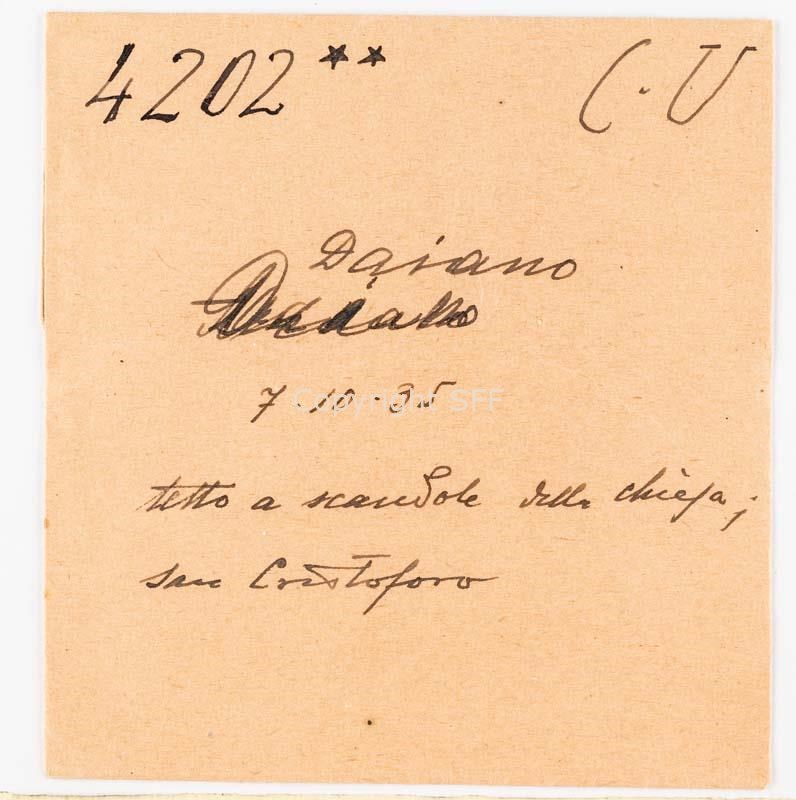 4202** C. U
Daiano
7-10-35
Copyright SFF
tetto a scandole della chiesa;
san Cristoforo